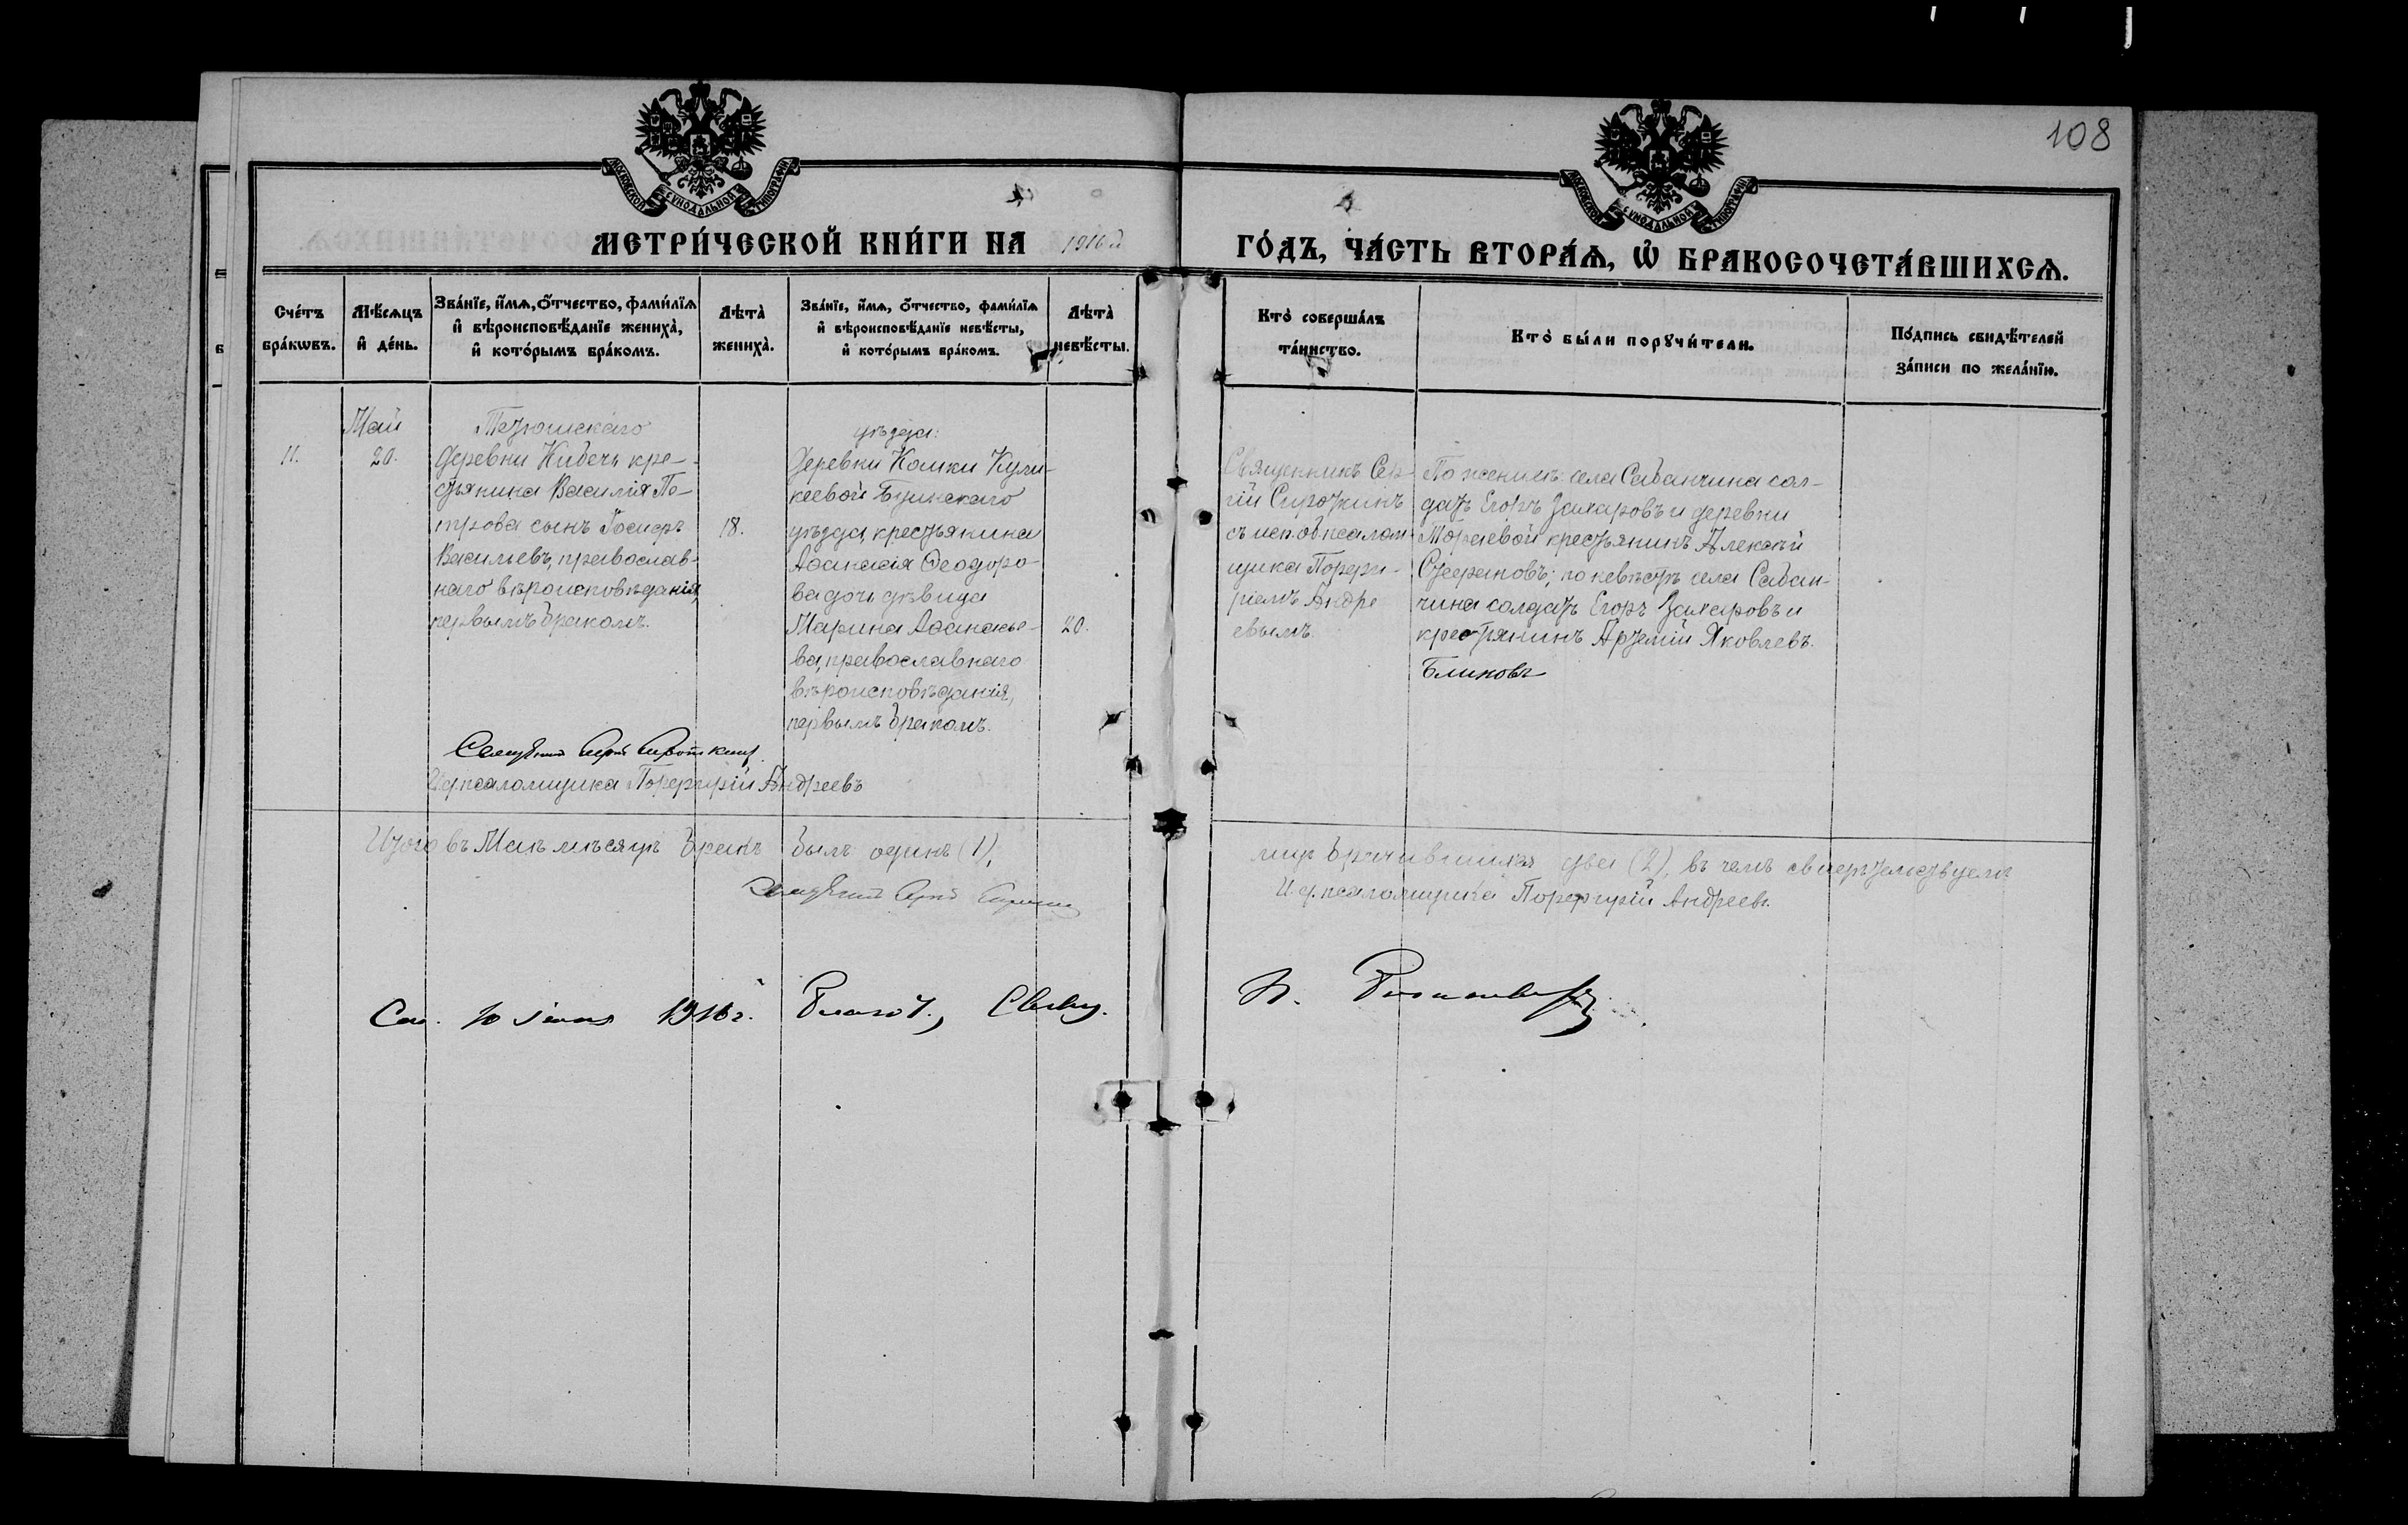 108
МОСКОВСКОЙ СѴНОДАЛЬНОЙ ТИПОГРАФІИ
МОСКОВСКОЙ СѴНОДАЛЬНОЙ ТИПОГРАФІИ
МЕТРИ́ЧЕСКОЙ КНИ́ГИ НА 1916 й ГО́ДЪ, ЧА́СТЬ ВТОРА́Ѧ, Ѽ БРАКОСОЧЕТА́ВШИХСѦ.
Сче́тъ
бра́кѡвъ.
Мѣ́сѧцъ
и҆ де́нь.
Зва́нїе, и҆́мѧ, ѻ҆́тчество, фами́лїѧ
и҆ вѣроисповѣ́данїе жениха̀,
и҆ кото́рымъ бра́комъ.
Лѣта̀
жениха̀.
Зва́нїе, и҆́мѧ, ѻ҆́тчество, фами́лїѧ
и҆ вѣроисповѣ́данїе невѣ́сты,
и҆ кото́рымъ бра́комъ.
Лѣта̀
невѣ́сты.
Кто̀ соверша́лъ
та́инство.
Кто̀ бы́ли порꙋчи́тели.
По́дпись свидѣ́телей
за́писи по жела́нїю.
11.
Май
20.
Тетюшскаго
деревни Кибечь кре-
стьянина Василія Пе-
трова сынъ Іосифъ
Васильевъ, православ-
наго вѣроисповѣданія,
первымъ бракомъ.
18.
уѣзда:
Деревни Кошки Кули-
кеевой Буинскаго
уѣзда, крестьянина
Аѳанасія Ѳеодоро-
ва дочь дѣвица
Марина Аѳанасье-
ва, православнаго
вѣроисповѣданія,
первымъ бракомъ.
20.
Священникъ Сер-
гій Сироткинъ
съ исп. об. псалом-
щика Порфи-
ріемъ Андре
евымъ.
По женихѣ: села Сабанчина сол-
датъ Егоръ Захаровъ и деревни
крестьянинъ Алексѣй
Стефановъ; по невѣстѣ села Сабан-
чина солдатъ Егоръ Захаровъ и
крестьянинъ Артемій Яковлевъ.
Блиновъ
Священникъ Сергій Сироткинъ.
И. ф. псаломщика Порфирій Андреевъ
Итого въ Маѣ мѣсяцѣ бракъ былъ одинъ (1),
лицъ брачившихся два (2), въ чемъ свидѣтельствуемъ
Священникъ Сергій Сироткинъ
И. ф. псаломщика Порфирій Андреевъ.
10 1916 г. Благоч., Свящ. Н.